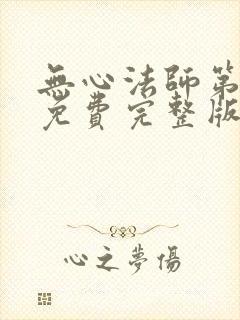 無心法師第
免費完整版
心之夢傷